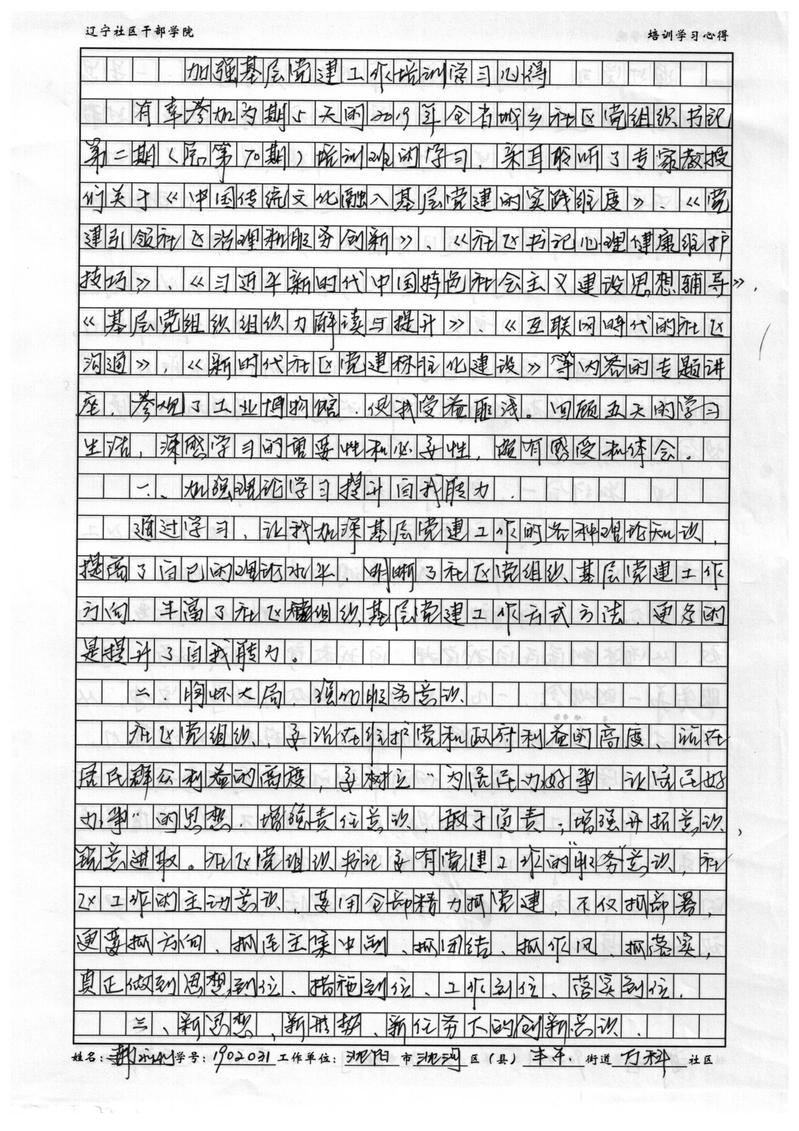 辽宁社区干部学院 培训学习心得
加强基层党建工作培训学习心得
有幸参加为期5天的2019年全省城乡社区党组织书记
第二期(总第70期)培训班的学习,亲耳聆听了专家教授
们关于《中国传统文化融入基层党建的实践维度》、《党
建引领社区治理和服务创新》、《社区书记心理健康维护
技巧》、《习近平新时代中国特色社会主义建设思想辅导》、
《基层党组织组织力解读与提升》、《互联网时代的社区
沟通》、《新时代社区党建标准化建设》等内容的专题讲
座,参观了工业博物馆,使我受益匪浅。回顾五天的学习
生活,深感学习的重要性和必要性,颇有感受和体会。
一、加强理论学习提升自我能力.
通过学习,让我加深基层党建工作的各种理论知识,
提高了自己的理论水平,明晰了社区党组织基层党建工作
方向,丰富了社区党组织基层党建工作方式方法,更多的
是提升了自我能力。
二、胸怀大局 强の服务意识.
社区党组织,要站在维护党和政府利益的高度,站在
居民群众利益的高度,要树立"为居民办好事,让居民好
办事"的思想,增强责任意识,敢于负责;增强开拓意识,
锐意进取。社区党组织书记要有党建工作的"服务"意识,社
区工作的主动意识,要用全部精力抓党建,不仅抓部署,
更要抓方向、抓民主集中制、抓团结、抓作风、抓落实,
真正做到思想到位、措施到位、工作到位、落实到位.
三、新思想、新形势、新任务下的创新意识.
姓名: 学号:1902031 工作单位:沈阳市沈河区(县)丰乐街道万科社区